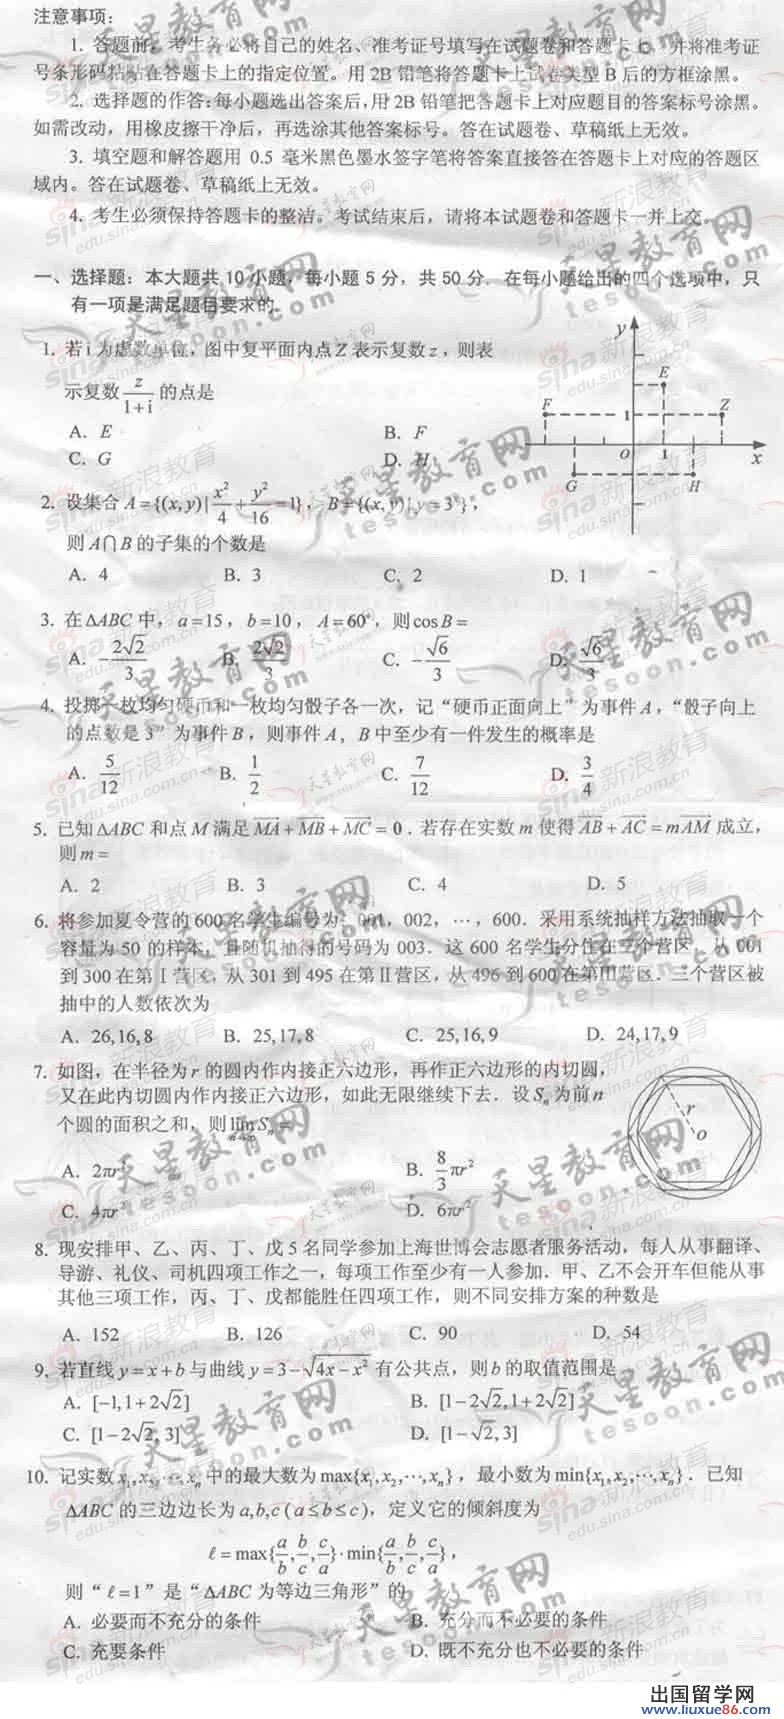 注意事项：
1. 答题前，考生务必将自己的姓名、准考证号填写在试题卷和答题卡上，并将准考证
号条形码粘贴在答题卡上的指定位置。用2B铅笔将答题卡上试卷类型B后的方框涂黑。
2. 选择题的作答：每小题选出答案后，用2B铅笔把答题卡上对应题目的答案标号涂黑。
如需改动，用橡皮擦干净后，再选涂其他答案标号。答在试题卷、草稿纸上无效。
3. 填空题和解答题用 0.5 毫米黑色墨水签字笔将答案直接答在答题卡上对应的答题区
域内。答在试题卷、草稿纸上无效。
4. 考生必须保持答题卡的整洁。考试结束后，请将本试题卷和答题卡一并上交。
一、选择题：本大题共 10 小题，每小题 5 分，共 50 分．在每小题给出的四个选项中，只
有一项是满足题目要求的．
1. 若 i 为虚数单位，图中复平面内点 Z 表示复数 z，则表
示复数 z/(1+i) 的点是
A．E B．F
C．G D．H
y E F 1 Z O 1 x G H
2. 设集合 A={(x,y)|x²/4+y²/16=1}，B={(x,y)|y=3ˣ}，
则 A∩B 的子集的个数是
A．4 B．3 C．2 D．1
3. 在 ΔABC 中，a=15，b=10，A=60°，则 cos B=
A．-2√2/3 B．2√2/3 C．-√6/3 D．√6/3
4. 投掷一枚均匀硬币和一枚均匀骰子各一次，记“硬币正面向上”为事件 A，“骰子向上
的点数是 3”为事件 B，则事件 A，B 中至少有一件发生的概率是
A．5/12 B．1/2 C．7/12 D．3/4
5. 已知 ΔABC 和点 M 满足 MA+MB+MC=0．若存在实数 m 使得 AB+AC=mAM 成立，
则 m=
A．2 B．3 C．4 D．5
6. 将参加夏令营的 600 名学生编号为：001，002，…，600．采用系统抽样方法抽取一个
容量为 50 的样本，且随机抽得的号码为 003．这 600 名学生分住在三个营区，从 001
到 300 在第Ⅰ营区，从 301 到 495 在第Ⅱ营区，从 496 到 600 在第Ⅲ营区．三个营区被
抽中的人数依次为
A．26,16,8 B．25,17,8 C．25,16,9 D．24,17,9
7. 如图，在半径为 r 的圆内作内接正六边形，再作正六边形的内切圆，
又在此内切圆内作内接正六边形，如此无限继续下去．设 Sₙ 为前 n
个圆的面积之和，则 lim n→∞ Sₙ=
A．2πr² B．8/3 πr²
C．4πr² D．6πr²
r O
8. 现安排甲、乙、丙、丁、戊 5 名同学参加上海世博会志愿者服务活动，每人从事翻译、
导游、礼仪、司机四项工作之一，每项工作至少有一人参加．甲、乙不会开车但能从事
其他三项工作，丙、丁、戊都能胜任四项工作，则不同安排方案的种数是
A．152 B．126 C．90 D．54
9. 若直线 y=x+b 与曲线 y=3-√(4x-x²) 有公共点，则 b 的取值范围是
A．[-1,1+2√2] B．[1-2√2,1+2√2]
C．[1-2√2,3] D．[1-√2,3]
10. 记实数 x₁,x₂,…,xₙ 中的最大数为 max{x₁,x₂,…,xₙ}，最小数为 min{x₁,x₂,…,xₙ}．已知
ΔABC 的三边边长为 a,b,c (a≤b≤c)，定义它的倾斜度为
ℓ=max{a/b,b/c,c/a}·min{a/b,b/c,c/a}，
则“ℓ=1”是“ΔABC 为等边三角形”的
A．必要而不充分的条件 B．充分而不必要的条件
C．充要条件 D．既不充分也不必要的条件
出国留学网
www.liuxue86.com